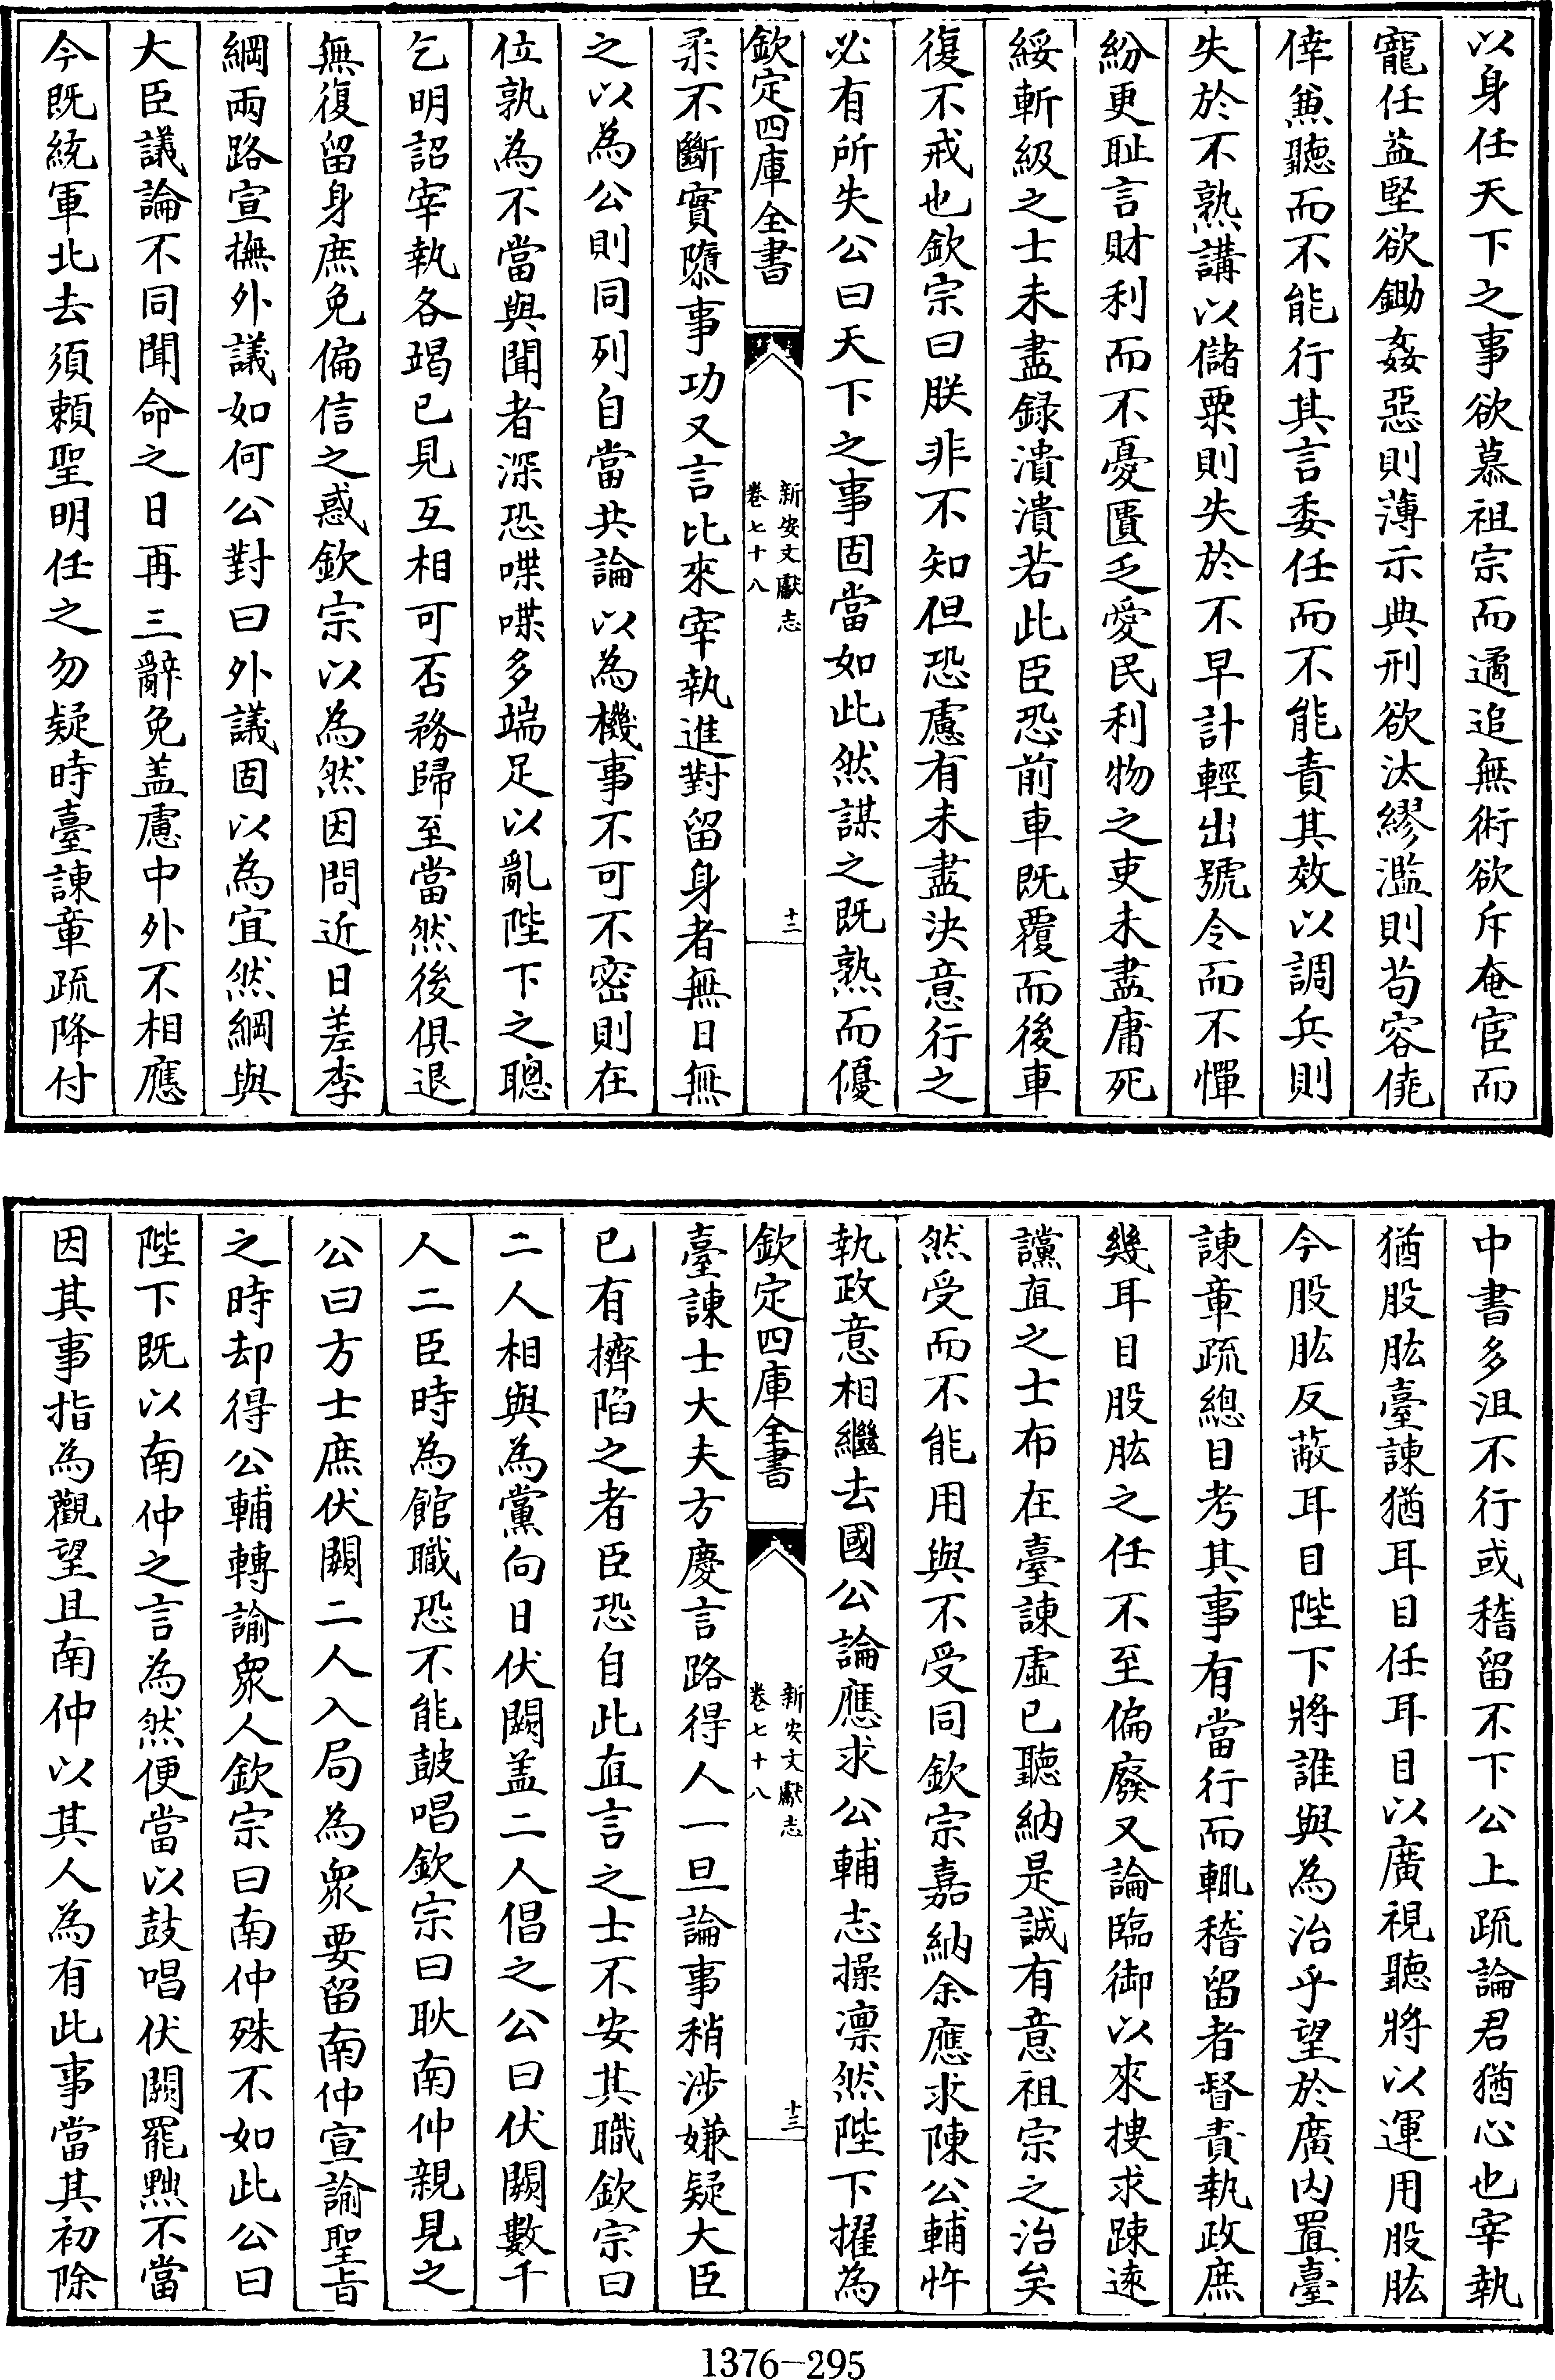 以身任天下之事欲慕祖宗而遹追無術欲斥奄宦而
寵任益堅欲鋤姦惡則薄示典刑欲汰繆濫則苟容僥
倖兼聽而不能行其言委任而不能責其效以調兵則
失於不熟講以儲粟則失於不早計輕出號令而不憚
紛更耻言財利而不憂匱乏愛民利物之吏未盡庸死
綏斬級之士未盡録潰潰若此臣恐前車既覆而後車
復不戒也欽宗曰朕非不知但恐慮有未盡決意行之
必有所失公曰天下之事固當如此然謀之既熟而優
欽定四庫全書
新安文獻志
卷七十八
十二
柔不斷實隳事功又言比來宰執進對留身者無日無
之以為公則同列自當共論以為機事不可不密則在
位孰為不當與聞者深恐喋喋多端足以亂陛下之聰
乞明詔宰執各竭已見互相可否務歸至當然後俱退
無復留身庶免偏信之惑欽宗以為然因問近日差李
綱兩路宣撫外議如何公對曰外議固以為宜然綱與
大臣議論不同聞命之日再三辭免盖慮中外不相應
今既統軍北去須賴聖明任之勿疑時臺諫章疏降付
中書多沮不行或稽留不下公上疏論君猶心也宰執
猶股肱臺諫猶耳目任耳目以廣視聽將以運用股肱
今股肱反蔽耳目陛下將誰與為治乎望於廣内置臺
諫章疏總目考其事有當行而輒稽留者督責執政庶
幾耳目股肱之任不至偏廢又論臨御以來捜求踈逺
讜直之士布在臺諫虛已聽納是誠有意祖宗之治矣
然受而不能用與不受同欽宗嘉納余應求陳公輔忤
執政意相繼去國公論應求公輔志操凛然陛下擢為
欽定四庫全書
新安文獻志
卷七十八
十三
臺諫士大夫方慶言路得人一旦論事稍涉嫌疑大臣
已有擠陷之者臣恐自此直言之士不安其職欽宗曰
二人相與為黨向日伏闕盖二人倡之公曰伏闕數千
人二臣時為館職恐不能鼓唱欽宗曰耿南仲親見之
公曰方士庶伏闕二人入局為衆要留南仲宣諭聖旨
之時却得公輔轉諭衆人欽宗曰南仲殊不如此公曰
陛下既以南仲之言為然便當以鼓唱伏闕罷黜不當
因其事指為觀望且南仲以其人為有此事當其初除
1376-295